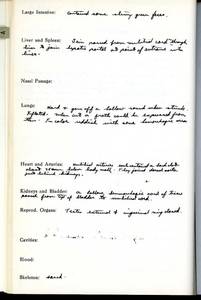 Large Intestine: contained some slimy green feces.
Liver and Spleen: Vein passed from umbilical cord though
liver to join hepatic portal at point of entrance into
liver.
Nasal Passage:
Lungs: Hard & gave off a hollow sound when struck.
Inflated. when cut a froth could be expressed from
them. In color reddish with some hemorrhagic areas
Heart and Arteries: umbilical arteries
below body wall. They joined dorsal aorta
just behind kidneys.
Kidneys and Bladder: a hollow hemorrhagic cord of tissue
passed from top of bladder to umbilical cord.
Reprod. Organs: Testes external & inguinal ring closed.
Cavities:
Blood:
Skeleton: saved